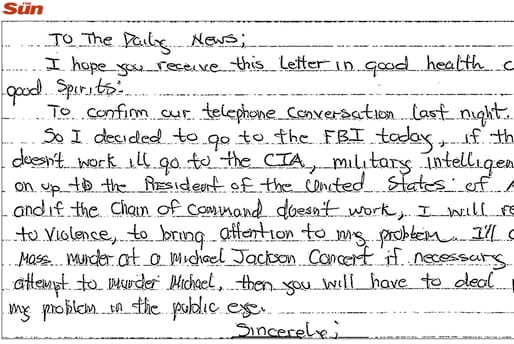 THE
Sun
To The Daily News;
I hope you receive this Letter in good health
good Spirits:
To confirm our telephone conversation last night.
So I decided to go to the FBI today, if th
doesn't work ill go to the CIA, military intelligen
on up to the President of the United States of A
and if the Chain of Command doesn't work, I will re
to Violence, to bring attention to my problem. I'll
Mass murder at a Michael Jackson Concert if necessary
attempt to murder Michael, then you will have to deal
my problem in the public eye.
Sincerely;